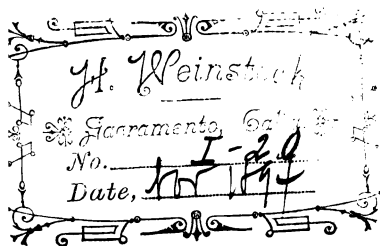 H. Weinstock
Sacramento, Cal.
No. I-20
Date,